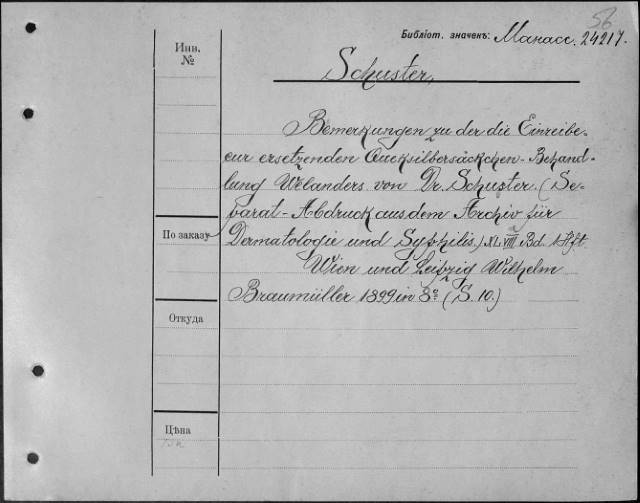 56
Библіот. значекъ: Манасс. 24217.
Инв.
№
Schuster,
Bemerkungen zu der die Einreibe-
cur ersetzenden Quecksilbersäckchen-Behand-
lung Welanders von Dr. Schuster. (Se-
parat-Abdruck aus dem Archiv für
По заказу
Dermatologie und Syphilis,) XLVIII Bd. 1 Hft.
Wien und Leipzig Wilhelm
Braumüller 1899 in 8º (S. 10.)
Откуда
Цѣна